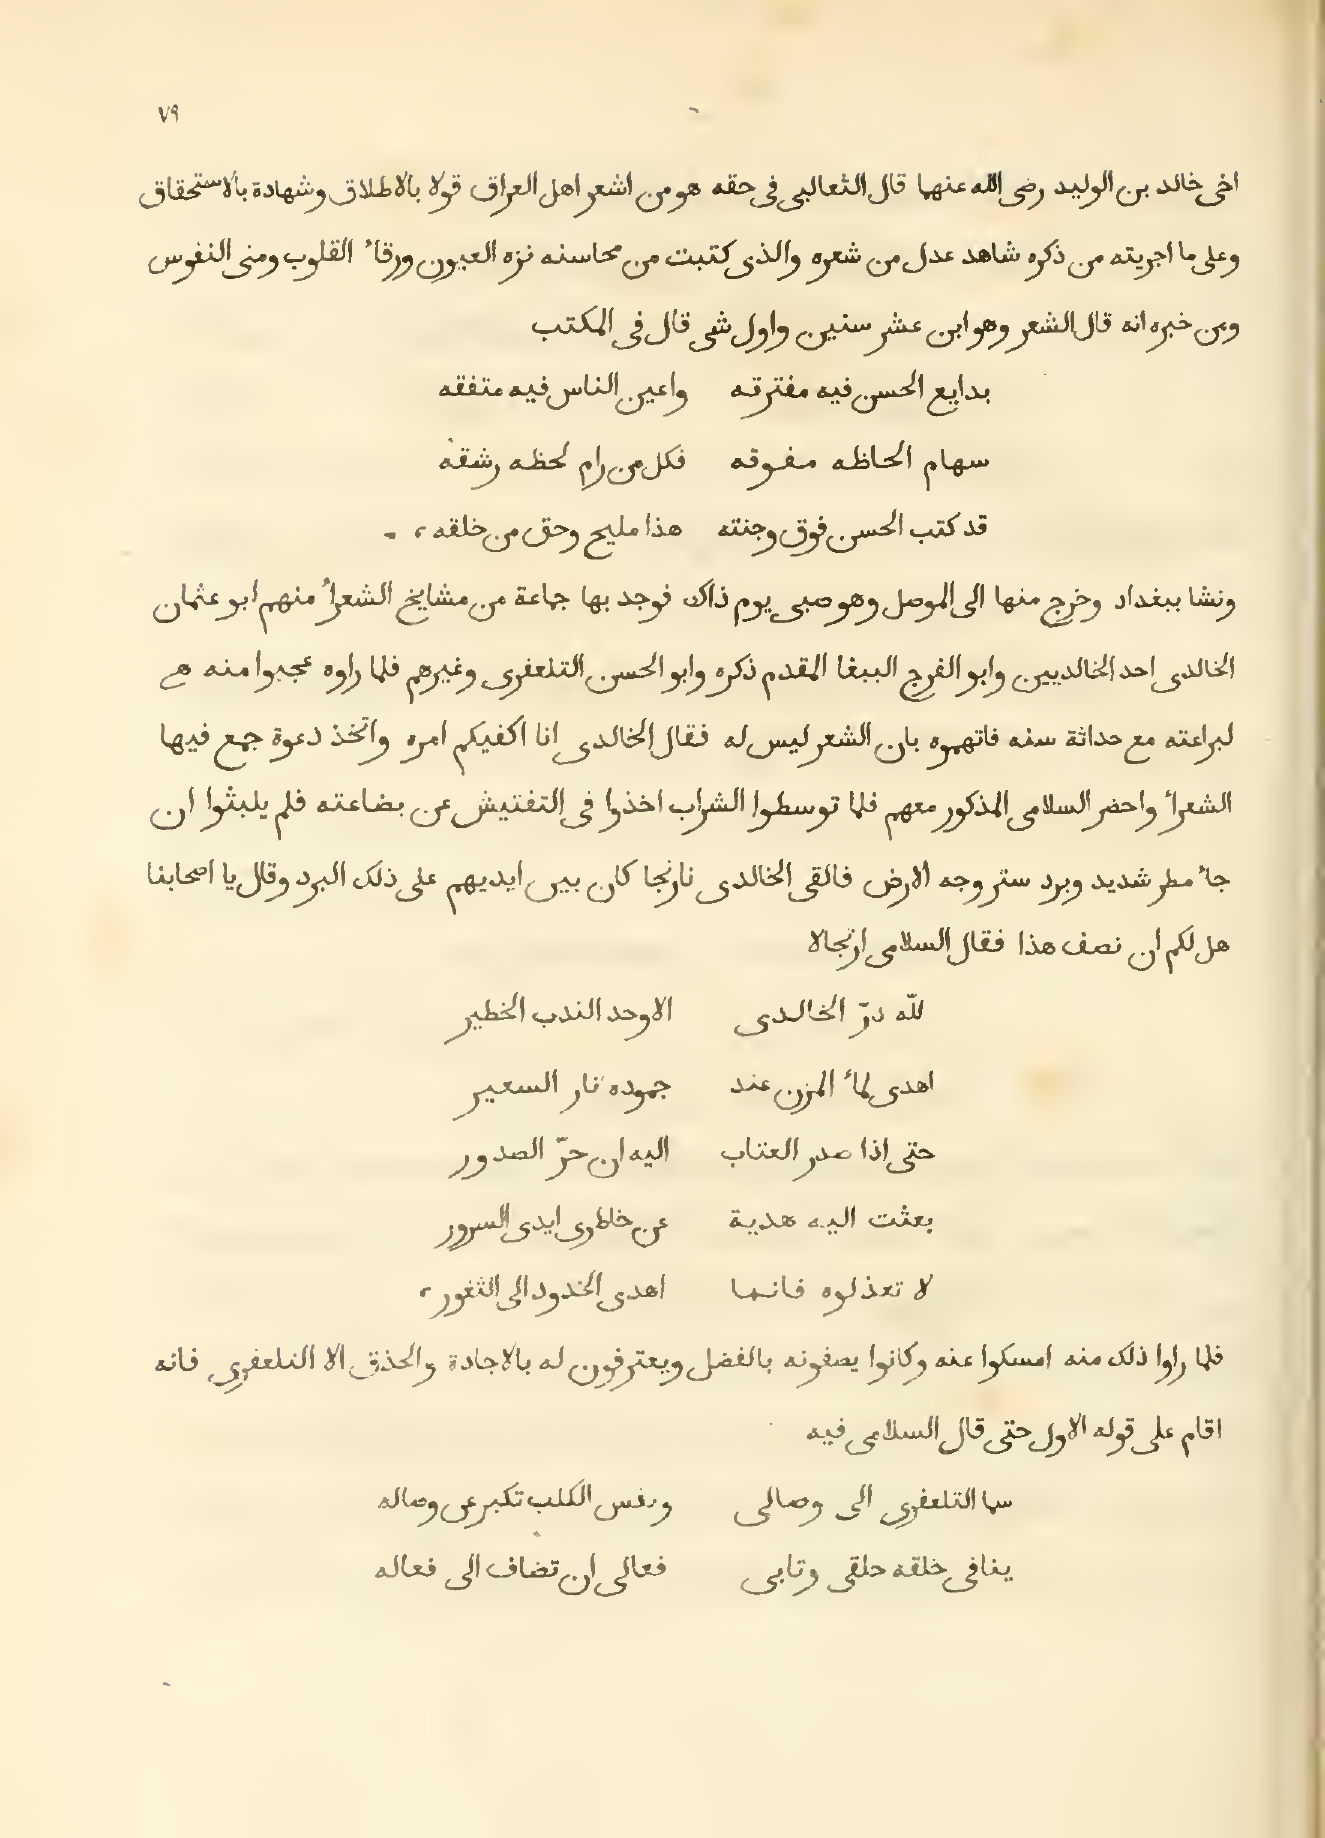 ٧٩
اخى خالد بن الوليد رضى الله عنهما قال الثعالبى فى حقه هو من اشعر اهل العراق قولا بالاطلاق وشهادة بالاستحقاق
وعلى ما اجريته من ذكره شاهد عدل من شعره والذى كتبت من محاسنه نزه العيون ورقاء القلوب ومنى النفوس
ومن خبره انه قال الشعر وهو ابن عشر سنين واول شى قال فى المكتب
بدايع الحسن فيه مفترقه واعين الناس فيه متفقه
سهام الحاظه مفوقه فكل من رام لحظه رشقه
قد كتب الحسن فوق وجنته هذا مليح وحق من خلقه،
ونشا ببغداد وخرج منها الى الموصل وهو صبى يوم ذاك فوجد بها جماعة من مشايخ الشعراء منهم ابو عثمان
الخالدى احد الخالديين وابو الفرج الببغا المقدم ذكره وابو الحسن التلعفرى وغيرهم فلما راوه عجبوا منه
لبراعته مع حداثة سنه فاتهموه بان الشعر ليس له فقال الخالدى انا اكفيكم امره واتخذ دعوة جمع فيها
الشعراء واحضر السلامى المذكور معهم فلما توسطوا الشراب اخذوا فى التفتيش عن بضاعته فلم يلبثوا ان
جاء مطر شديد وبرد ستر وجه الارض فالقى الخالدى نارنجا كان بين ايديهم على ذلك البرد وقال يا اصحابنا
هل لكم ان نصف هذا فقال السلامى ارتجالا
لله درّ الخالدى الاوحد الندب الخطير
اهدى لماء المزن عند جموده نار السعير
حتى اذا صدر العتاب اليه ان حرّ الصدور
بعثت اليه هدية عن خاطرى ايدى السرور
لا تعذلوه فانما اهدى الخدود الى الثغور،
فلما راوا ذلك منه امسكوا عنه وكانوا يصفونه بالفضل ويعترفون له بالاجادة والحذق الا التلعفرى فانه
اقام على قوله الاول حتى قال السلامى فيه
سما التلعفرى الى وصالى ونفس الكلب تكبر عن وصاله
ينافى خلقه خلقى وتابى فعالى ان تضاف الى فعاله